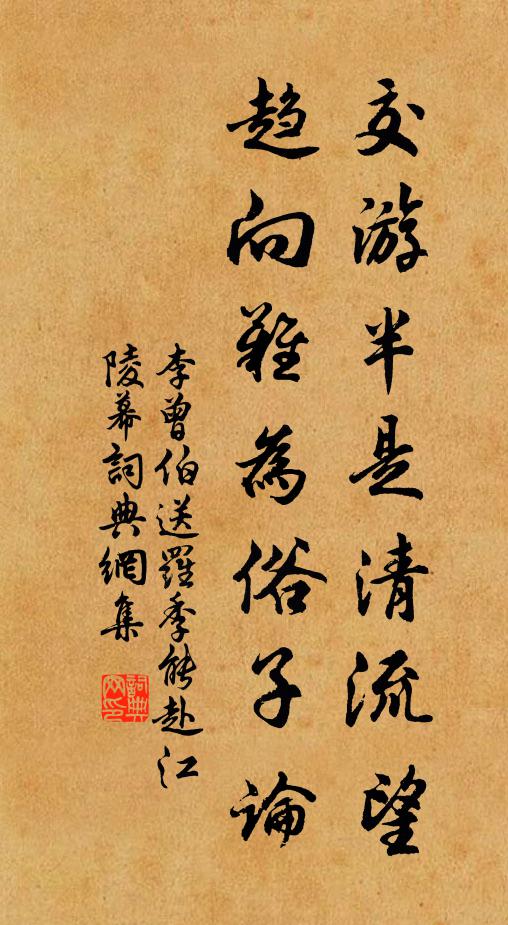 交游半是清流望
趋向難為俗子論
李曾伯送羅季能赴江
陵幕詞典網集
詞典
网印